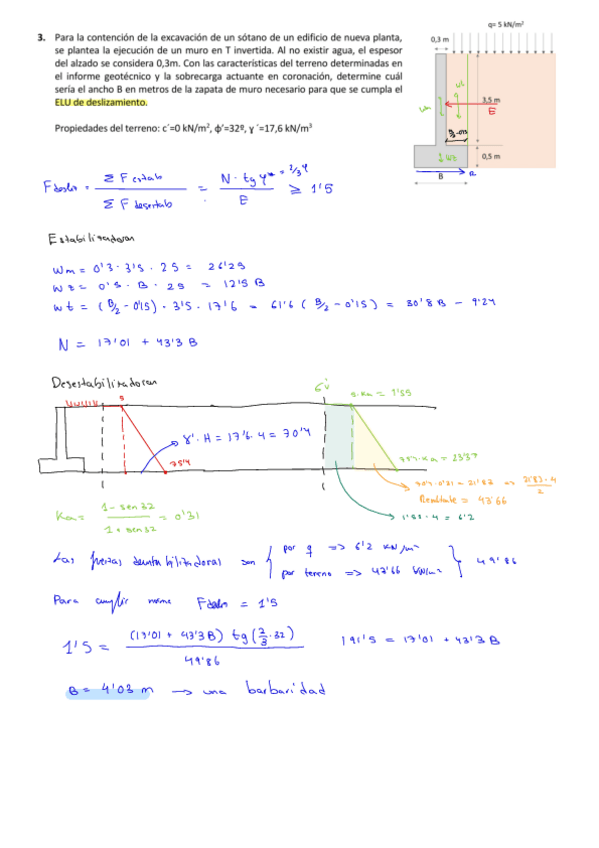 3. Para la contención de la excavación de un sótano de un edificio de nueva planta,
se plantea la ejecución de un muro en T invertida. Al no existir agua, el espesor
del alzado se considera 0,3m. Con las características del terreno determinadas en
el informe geotécnico y la sobrecarga actuante en coronación, determine cuál
sería el ancho B en metros de la zapata de muro necesario para que se cumpla el
ELU de deslizamiento.
Propiedades del terreno: c´=0 kN/m², ϕ'=32º, γ ´=17,6 kN/m³
q= 5 kN/m²
0,3 m
Wt
q
Wm
3,5 m
E
B/2-0'15
Wz
0,5 m
B
R
Fdesliz = Σ F estab / Σ F desestab = N · tg φ* = 2/3 φ / E ≥ 1'5
Estabilizadoras
Wm = 0'3 · 3'5 · 25 = 26'25
Wz = 0'5 · B · 25 = 12'5 B
Wt = (B/2 - 0'15) · 3'5 · 17'6 = 61'6 (B/2 - 0'15) = 30'8 B - 9'24
N = 17'01 + 43'3 B
Desestabilizadoras
5
γ' · H = 17'6 · 4 = 70'4
75'4
5 · Ka = 1'55
75'4 · Ka = 23'37
70'4 · 0'31 = 21'83 => 21'83 · 4 / 2
Resultante = 43'66
1'55 · 4 = 6'2
Ka = 1 - sen 32 / 1 + sen 32 = 0'31
Las fuerzas desestabilizadoras son { por q => 6'2 kN/m
por terreno => 43'66 kN/m } 49'86
Para cumplir Fdesliz = 1'5
1'5 = (17'01 + 43'3 B) tg (2/3 · 32) / 49'86
191'5 = 17'01 + 43'3 B
B = 4'03 m → una barbaridad